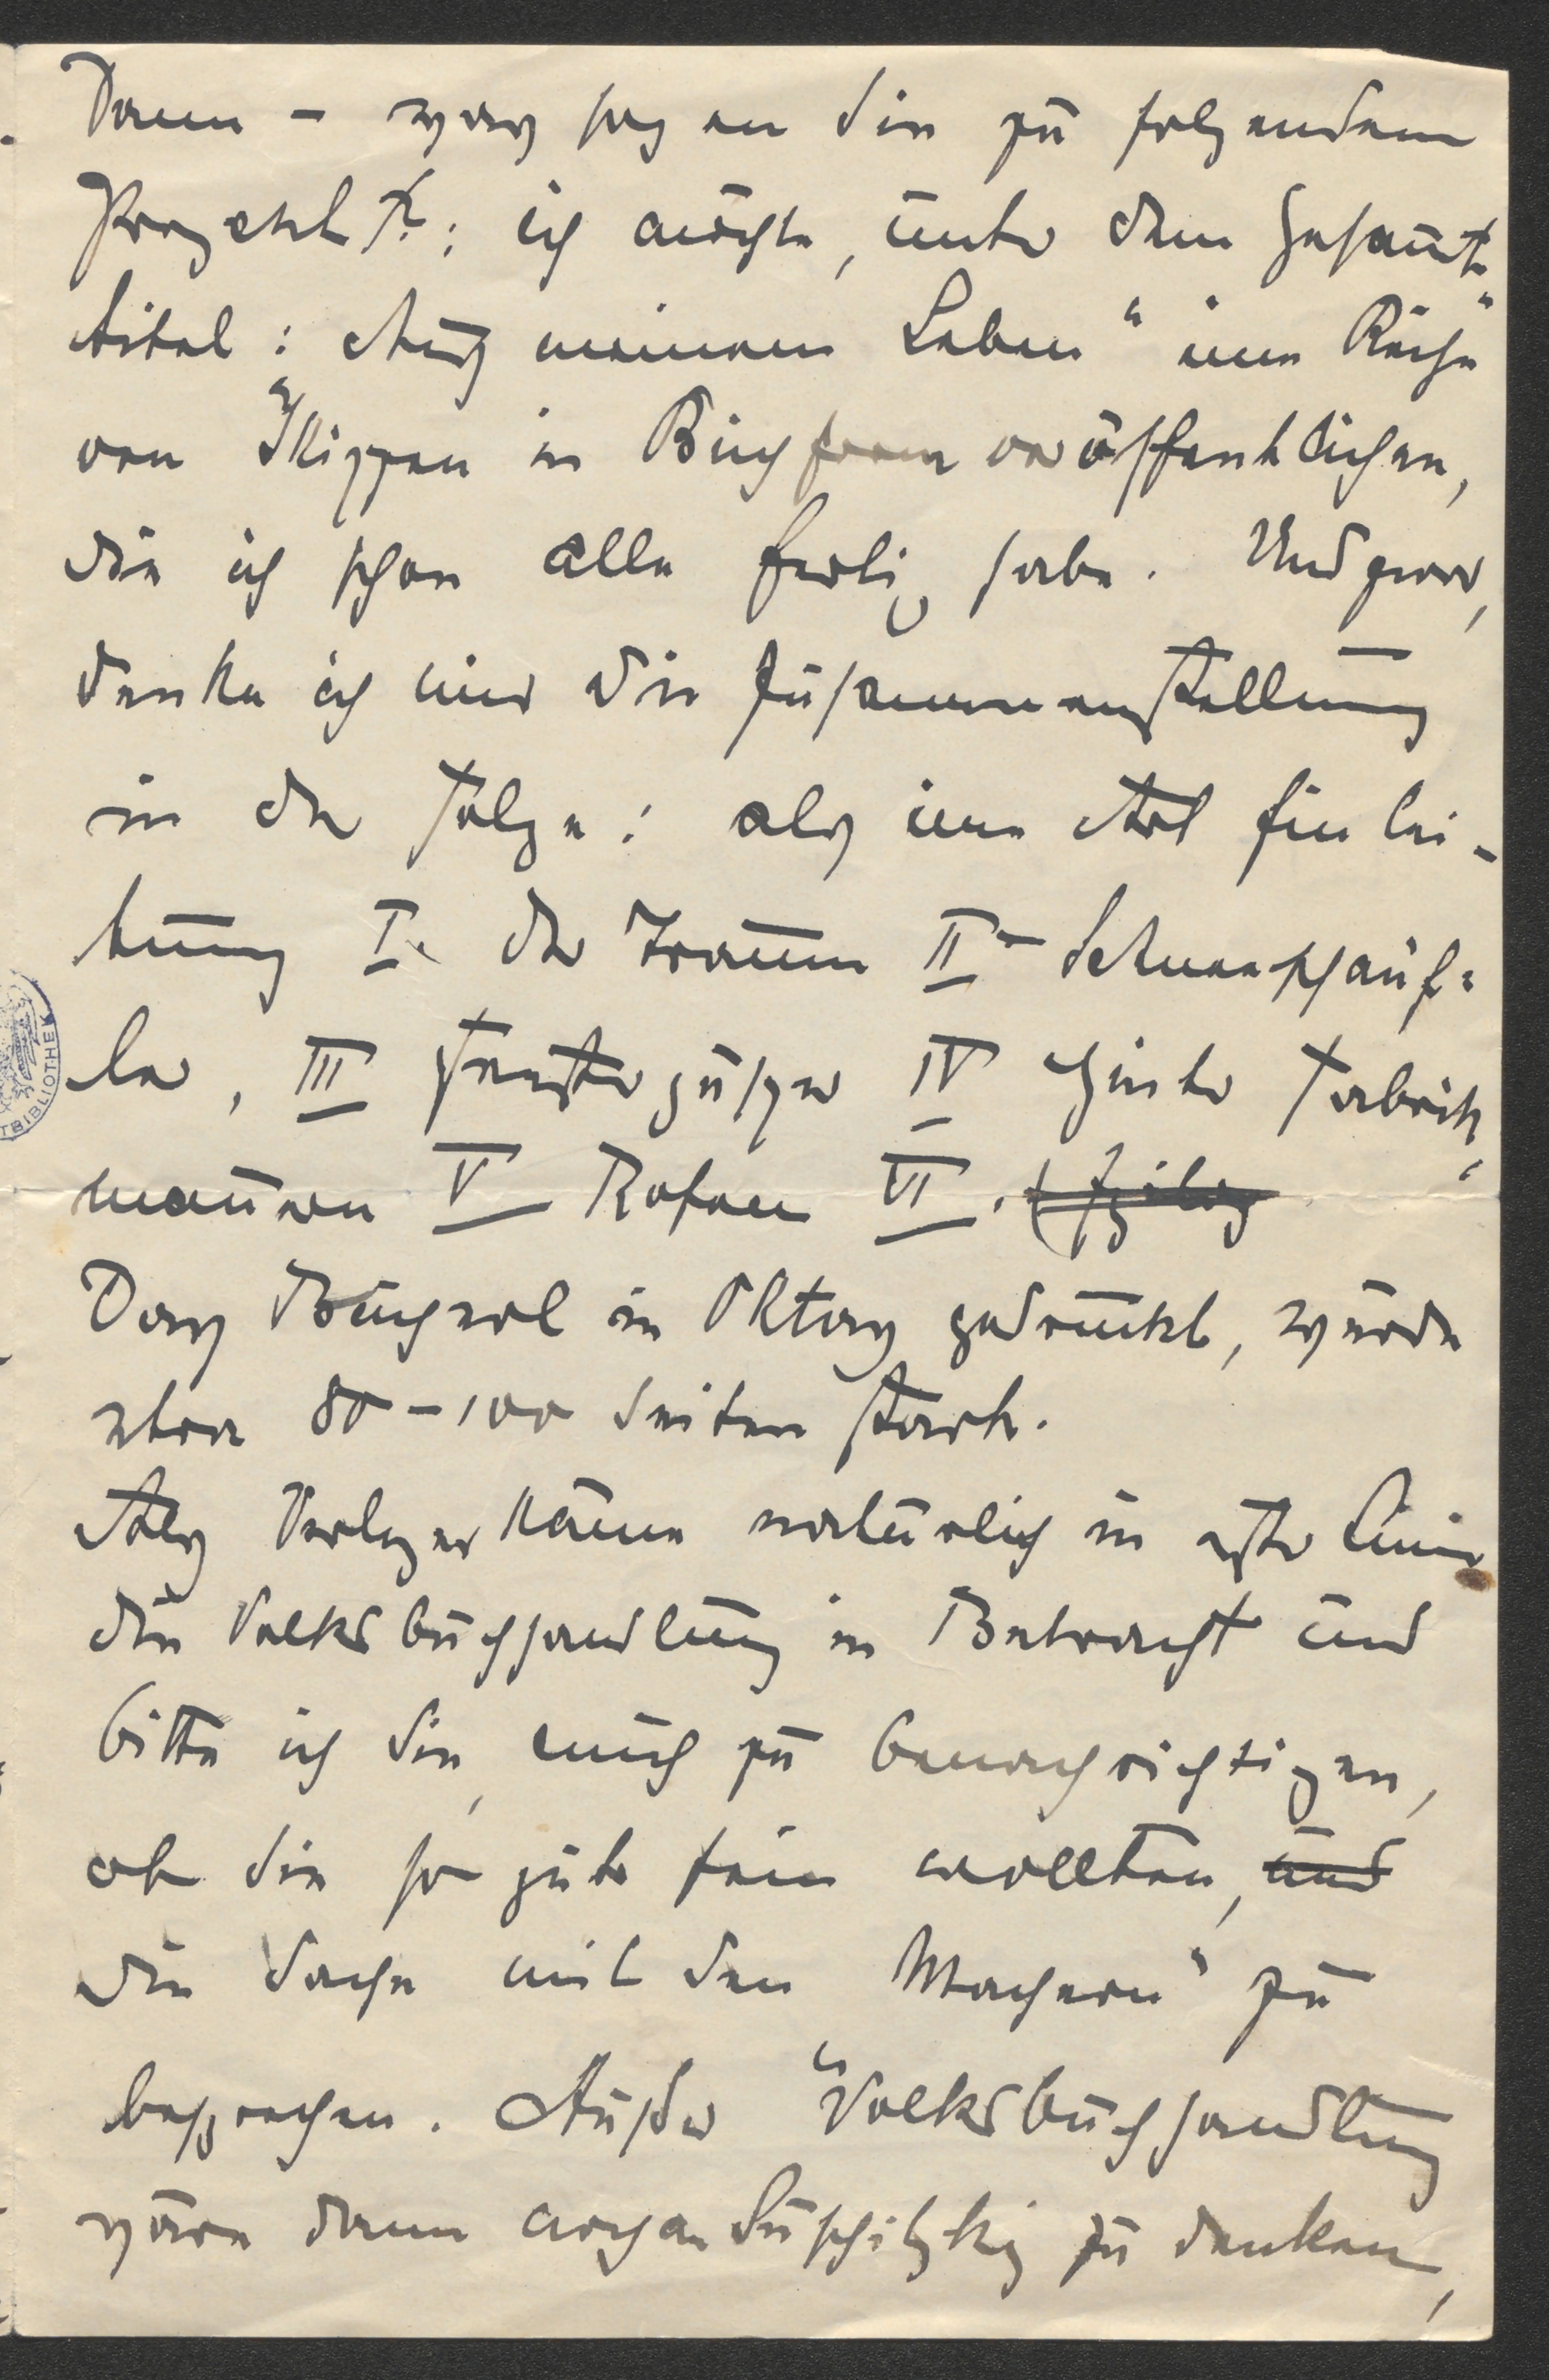 Dann – was sagen Sie zu folgendem
Projekt?: ich möchte, unter dem Gesamt-
titel: Aus meinem Leben" eine Reihe"
von Skizzen in Buchform veröffentlichen,
die ich schon alle fertig habe. Und zwar,
denke ich mir die Zusammenstellung
in der Folge: als eine Art Einlei-
tung I. der Traum II – Schneeschauf-
ler, III Fensterputzer IV Hinter Fabrik,
mauern V Rosam VI.
Das Bücherl in Oktav gedruckt, würde
etwa 80–100 Seiten stark.
Als Verleger käme natürlich in erster Linie
die Volksbuchhandlung in Betracht und
bitte ich Sie, mich zu benachrichtigen,
ob Sie so gut sein wollten, und
die Sache mit den Machern" zu
besprechen. Außer "Volksbuchhandlung
wäre dann noch an Suschitzky zu denken,
TBIBLIOTHEK